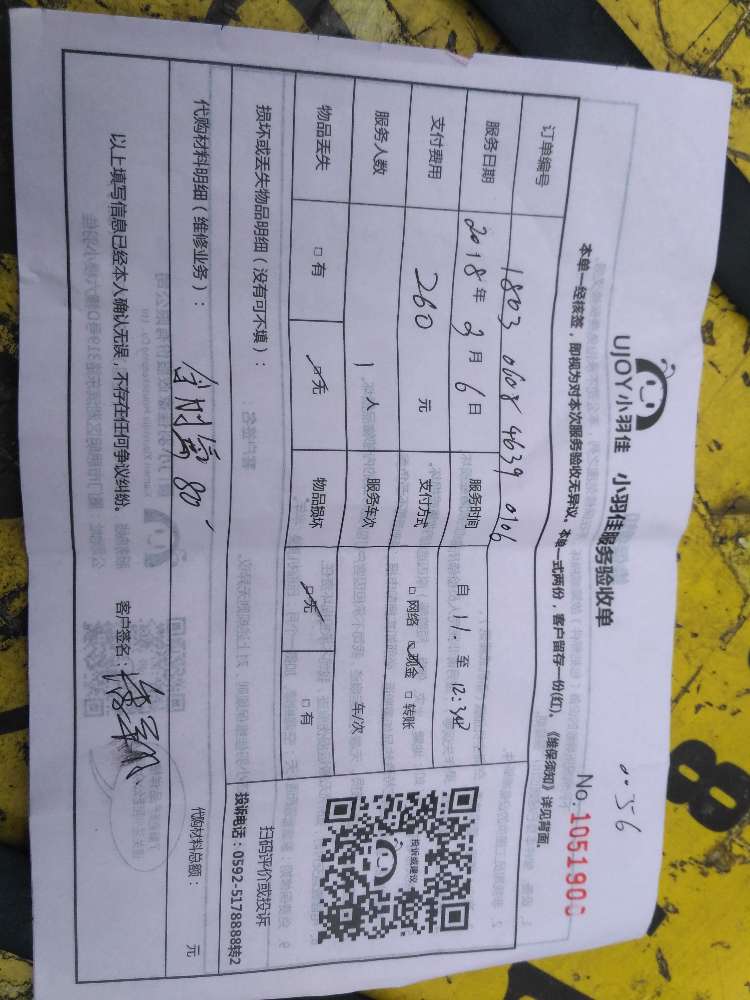 UJOY小羽佳 小羽佳服务验收单
No. 1051906
本单一经核签，即视为对本次服务验收无异议。本单一式两份，客户留存一份(红)。《维保须知》详见背面。
订单编号 1803 0608 4639 0106
服务日期 2018 年 3 月 6 日 服务时间 自 11. 至
支付费用 260 元 支付方式 □ 网络 ☑ 现金 □ 转账
服务人数 1 人 服务车次 车/次
物品丢失 □ 有 ☑ 无 物品损坏 ☑ 无 □ 有
损坏或丢失物品明细（没有可不填）：
扫码评价或投诉
投诉电话：0592-5178888转2
投诉或建议
代购材料明细（维修业务）： 80
代购材料总额： 元
以上填写信息已经本人确认无误，不存在任何争议纠纷。 客户签名：